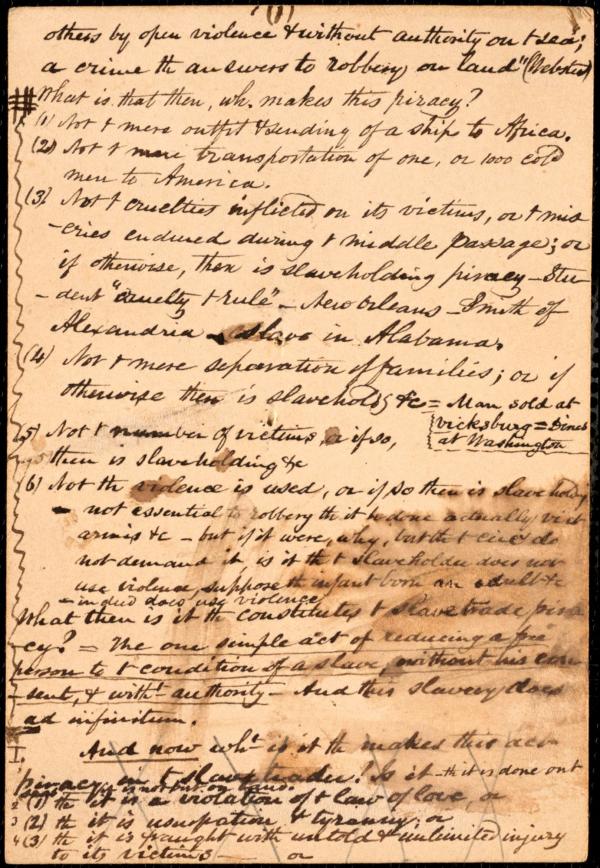 (1)
others by open violence & without authority on t sea;
a crime th answers to robbery on land" (Webster)
What is that then, wh. makes this piracy?
(1) Not t mere outfit & sending of a ship to Africa.
(2) Not t mere transportation of one, or 1000 cold
men to America.
(3) Not t cruelties inflicted on its victims, or t mis-
-eries endured during t middle passage; or
if otherwise, then is slaveholding piracy - Stu-
-dent "cruelty t rule" - New Orleans - Smith of
Alexandria - slave in Alabama.
(4) Not t mere separation of families; or if
otherwise then is slaveholdg &c = Man sold at
Vicksburg =
at Washington
(5) Not t number of victims, or if so,
then is slaveholding &c
(6) Not th violence is used, or if so then is slaveholdg
- not essential to robbery th it be done actually vi et
armis &c - but if it were, why, but th t do
not demand it, is it th t slaveholder does not
use violence, suppose the infant born an adult &c
- indeed does use violence
What then is it th constitutes t slave trade pira
cy? = The one simple act of reducing a free
person to t condition of a slave, without his con
-sent, & witht authority - And this slavery does
ad infinitum.
I. And now wht is it th makes this act
piracy in t slave trader? Is it - th it is done out
2 (1) th it is a violation of t law of love, or
3 (2) th it is usurpation & tyranny; or
4 (3) th it is fraught with untold & unlimited injury
to its victims - or